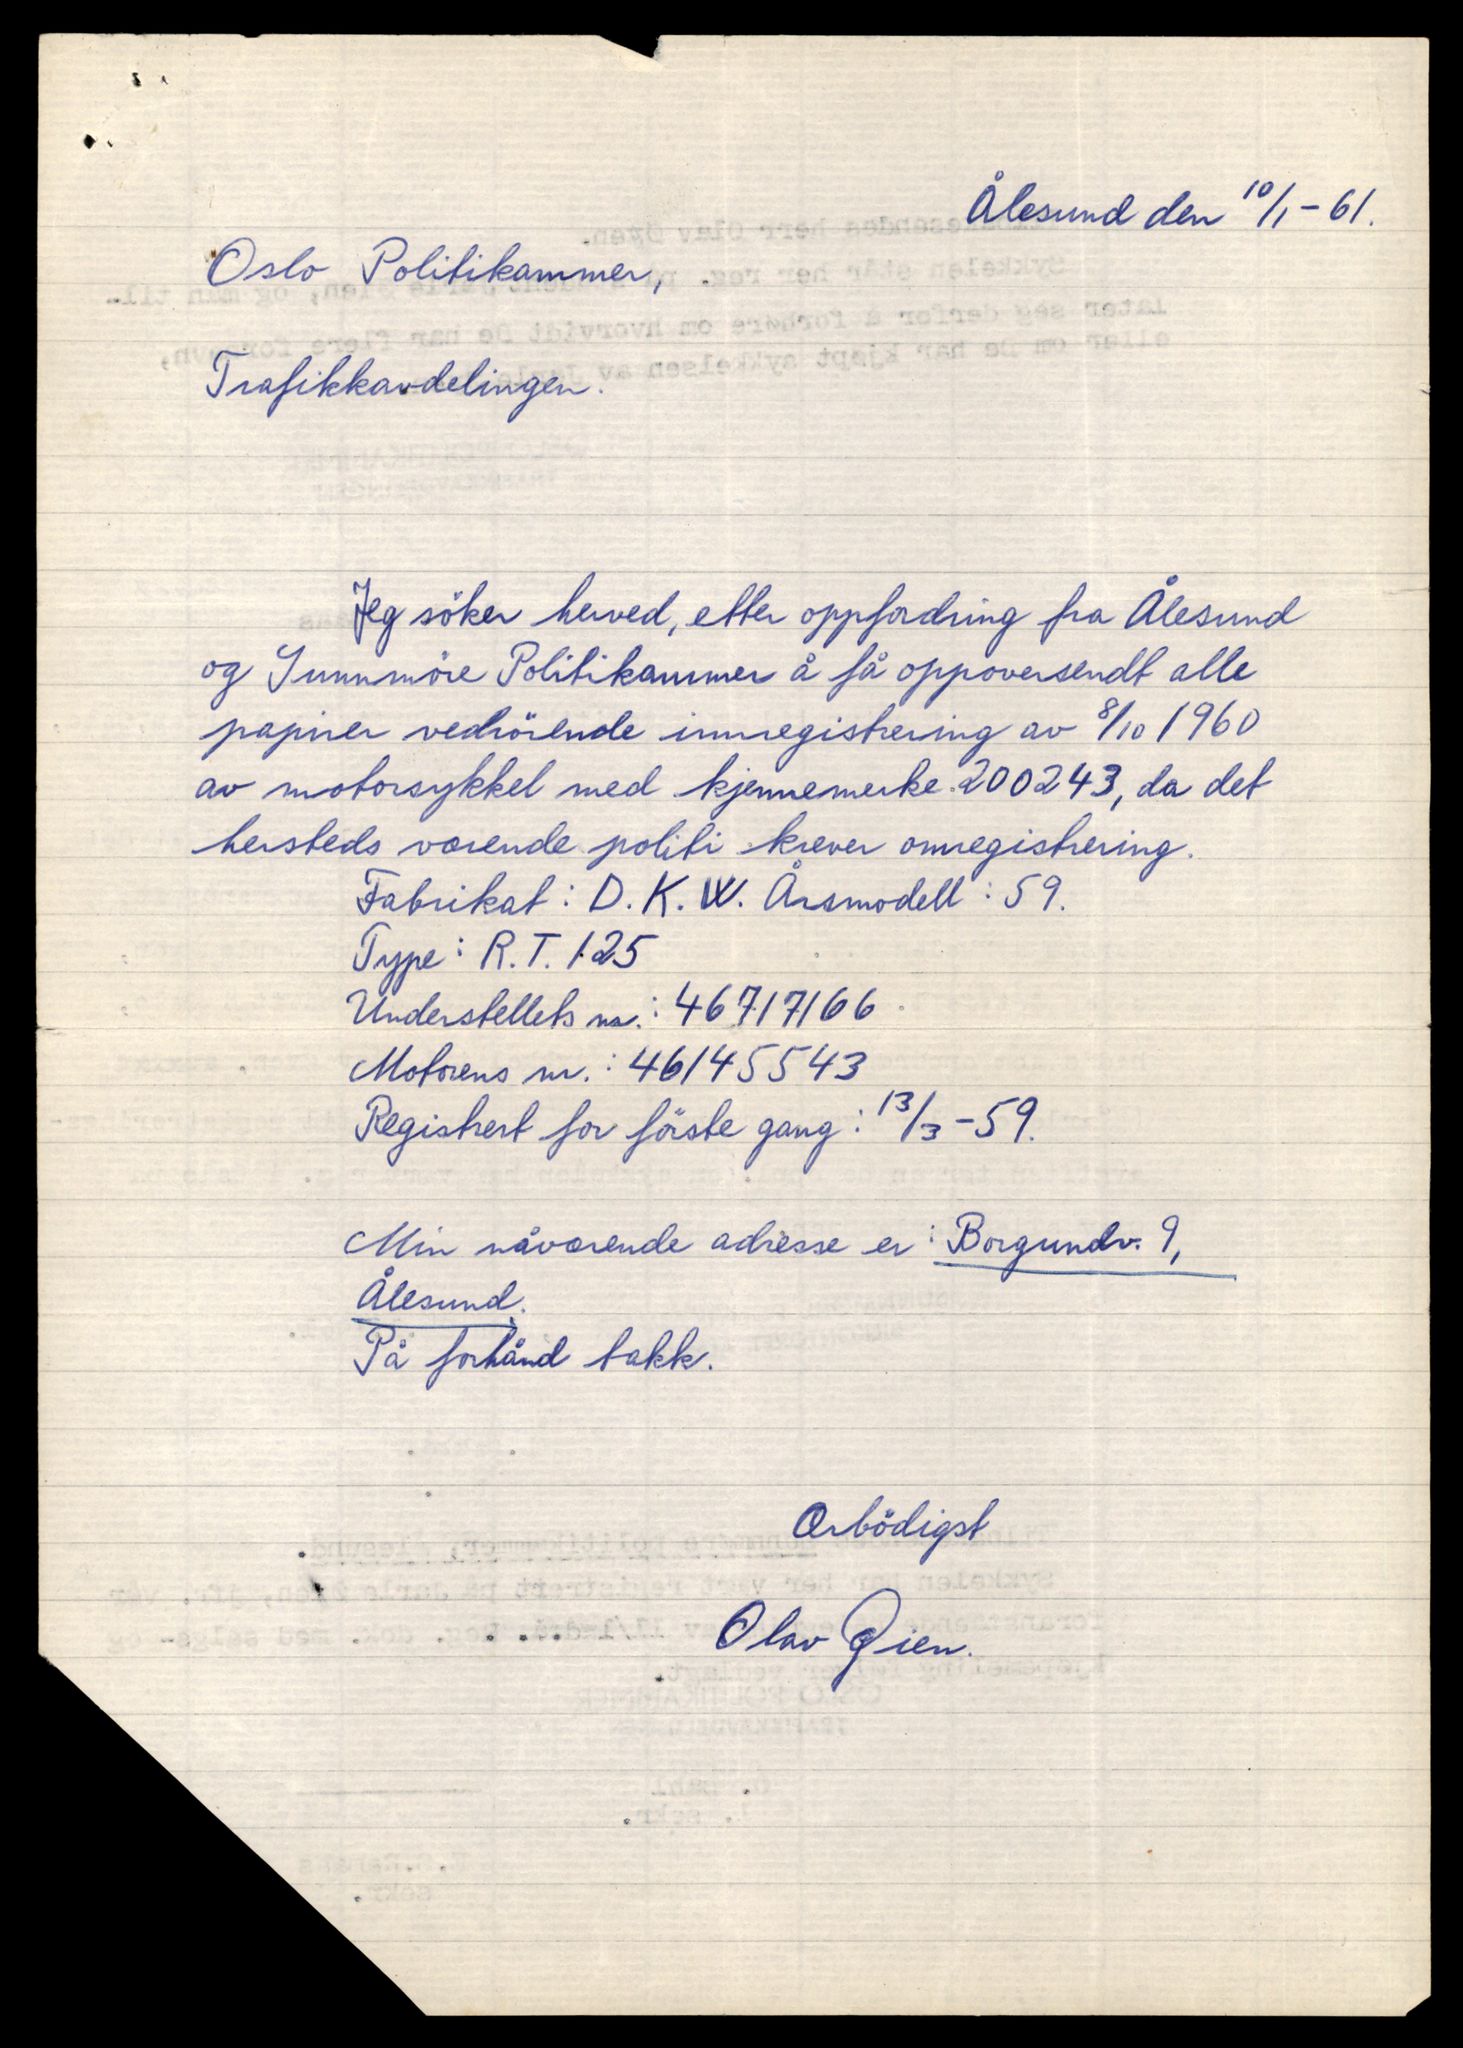 Ålesund den 10/1 - 61.
Oslo Politikammer,
Trafikkavdelingen.
Jeg söker herved, etter oppfordring fra Ålesund
og Sunnmöre Politikammer å få oppoversendt alle
papirer vedrörende innregistrering av 8/10 1960
av motorsykkel med kjennemerke 200243, da det
hersteds værende politi krever omregistrering.
Fabrikat: D. K. W. Årsmodell: 59.
Type: R. T. 125
Understellets nr.: 46717166
Motorens nr.: 46145543
Registrert for förste gang: 13/3 - 59.
Min nåværende adresse er: Borgundv. 9,
Ålesund.
På forhånd takk.
Ærbödigst
Olav Øien.